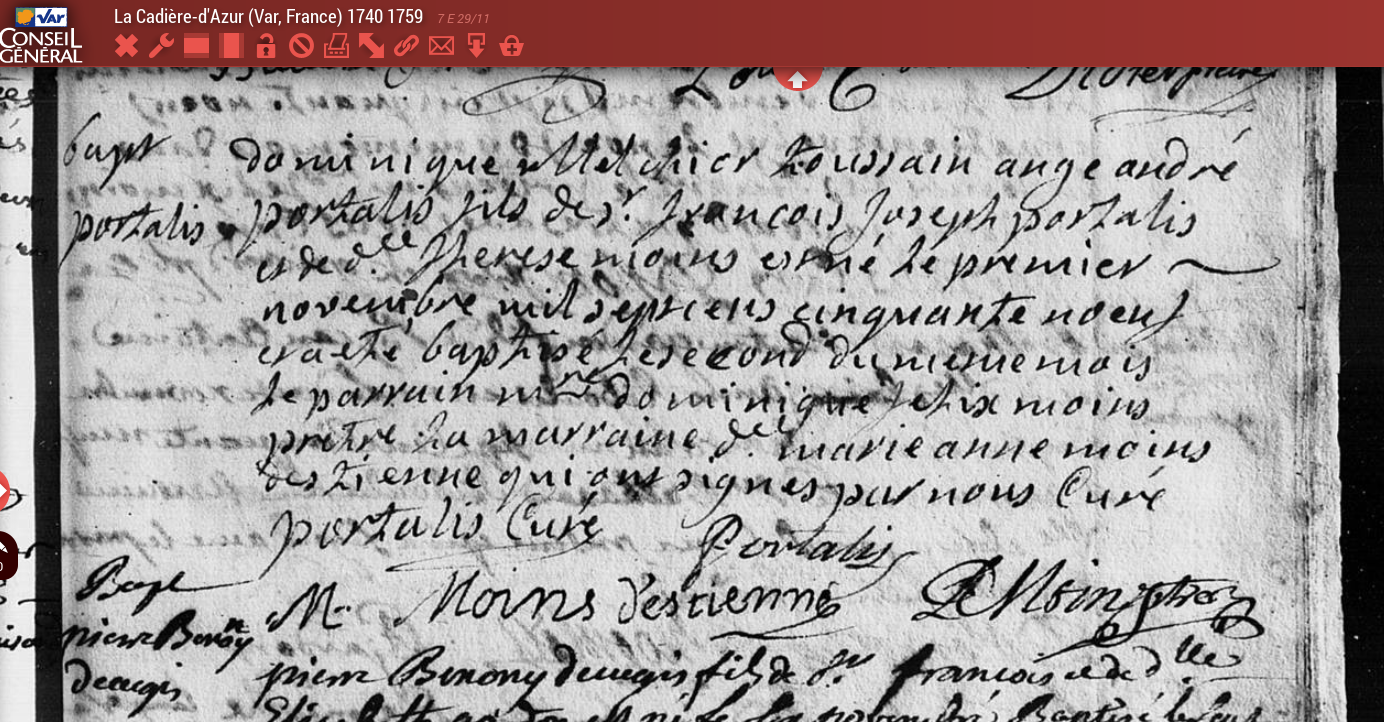 La Cadière-d'Azur (Var, France) 1740 1759 7 E 29/11
VAR
CONSEIL
GÉNÉRAL
bapt
portalis
dominique Melchior toussain ange andré
portalis fils de sr. francois Joseph portalis
et de d.lle Therese moins est né le premier
novembre mil septcens cinquante noeuf
et a eté baptisé le second du meme mois
le parrain mre dominique felix moins
pretre la marraine d.lle marie anne moins
destienne qui ont signes par nous Curé
portalis Curé Portalis
M. Moins d'estienne D Moins ptre
Bapt
pierre Bonony
decugis
pierre Bonony decugis fils de Sr francois et de dlle